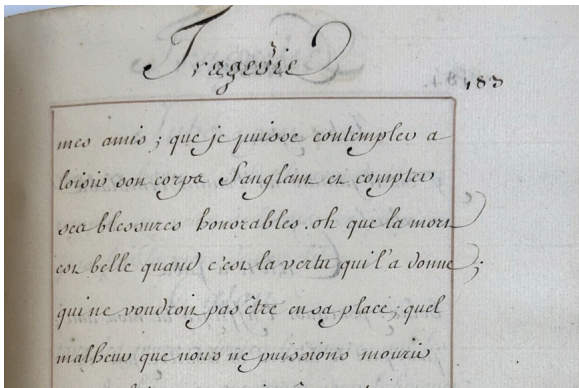 Tragedie
183
mes amis ; que je puisse contempler a
loisir son corps Sanglant et compter
ses blessures honorables . oh que la mort
est belle quand c'est la vertu qui l'a donne ;
qui ne voudroit pas être en sa place ; quel
malheur que nous ne puissions mourir